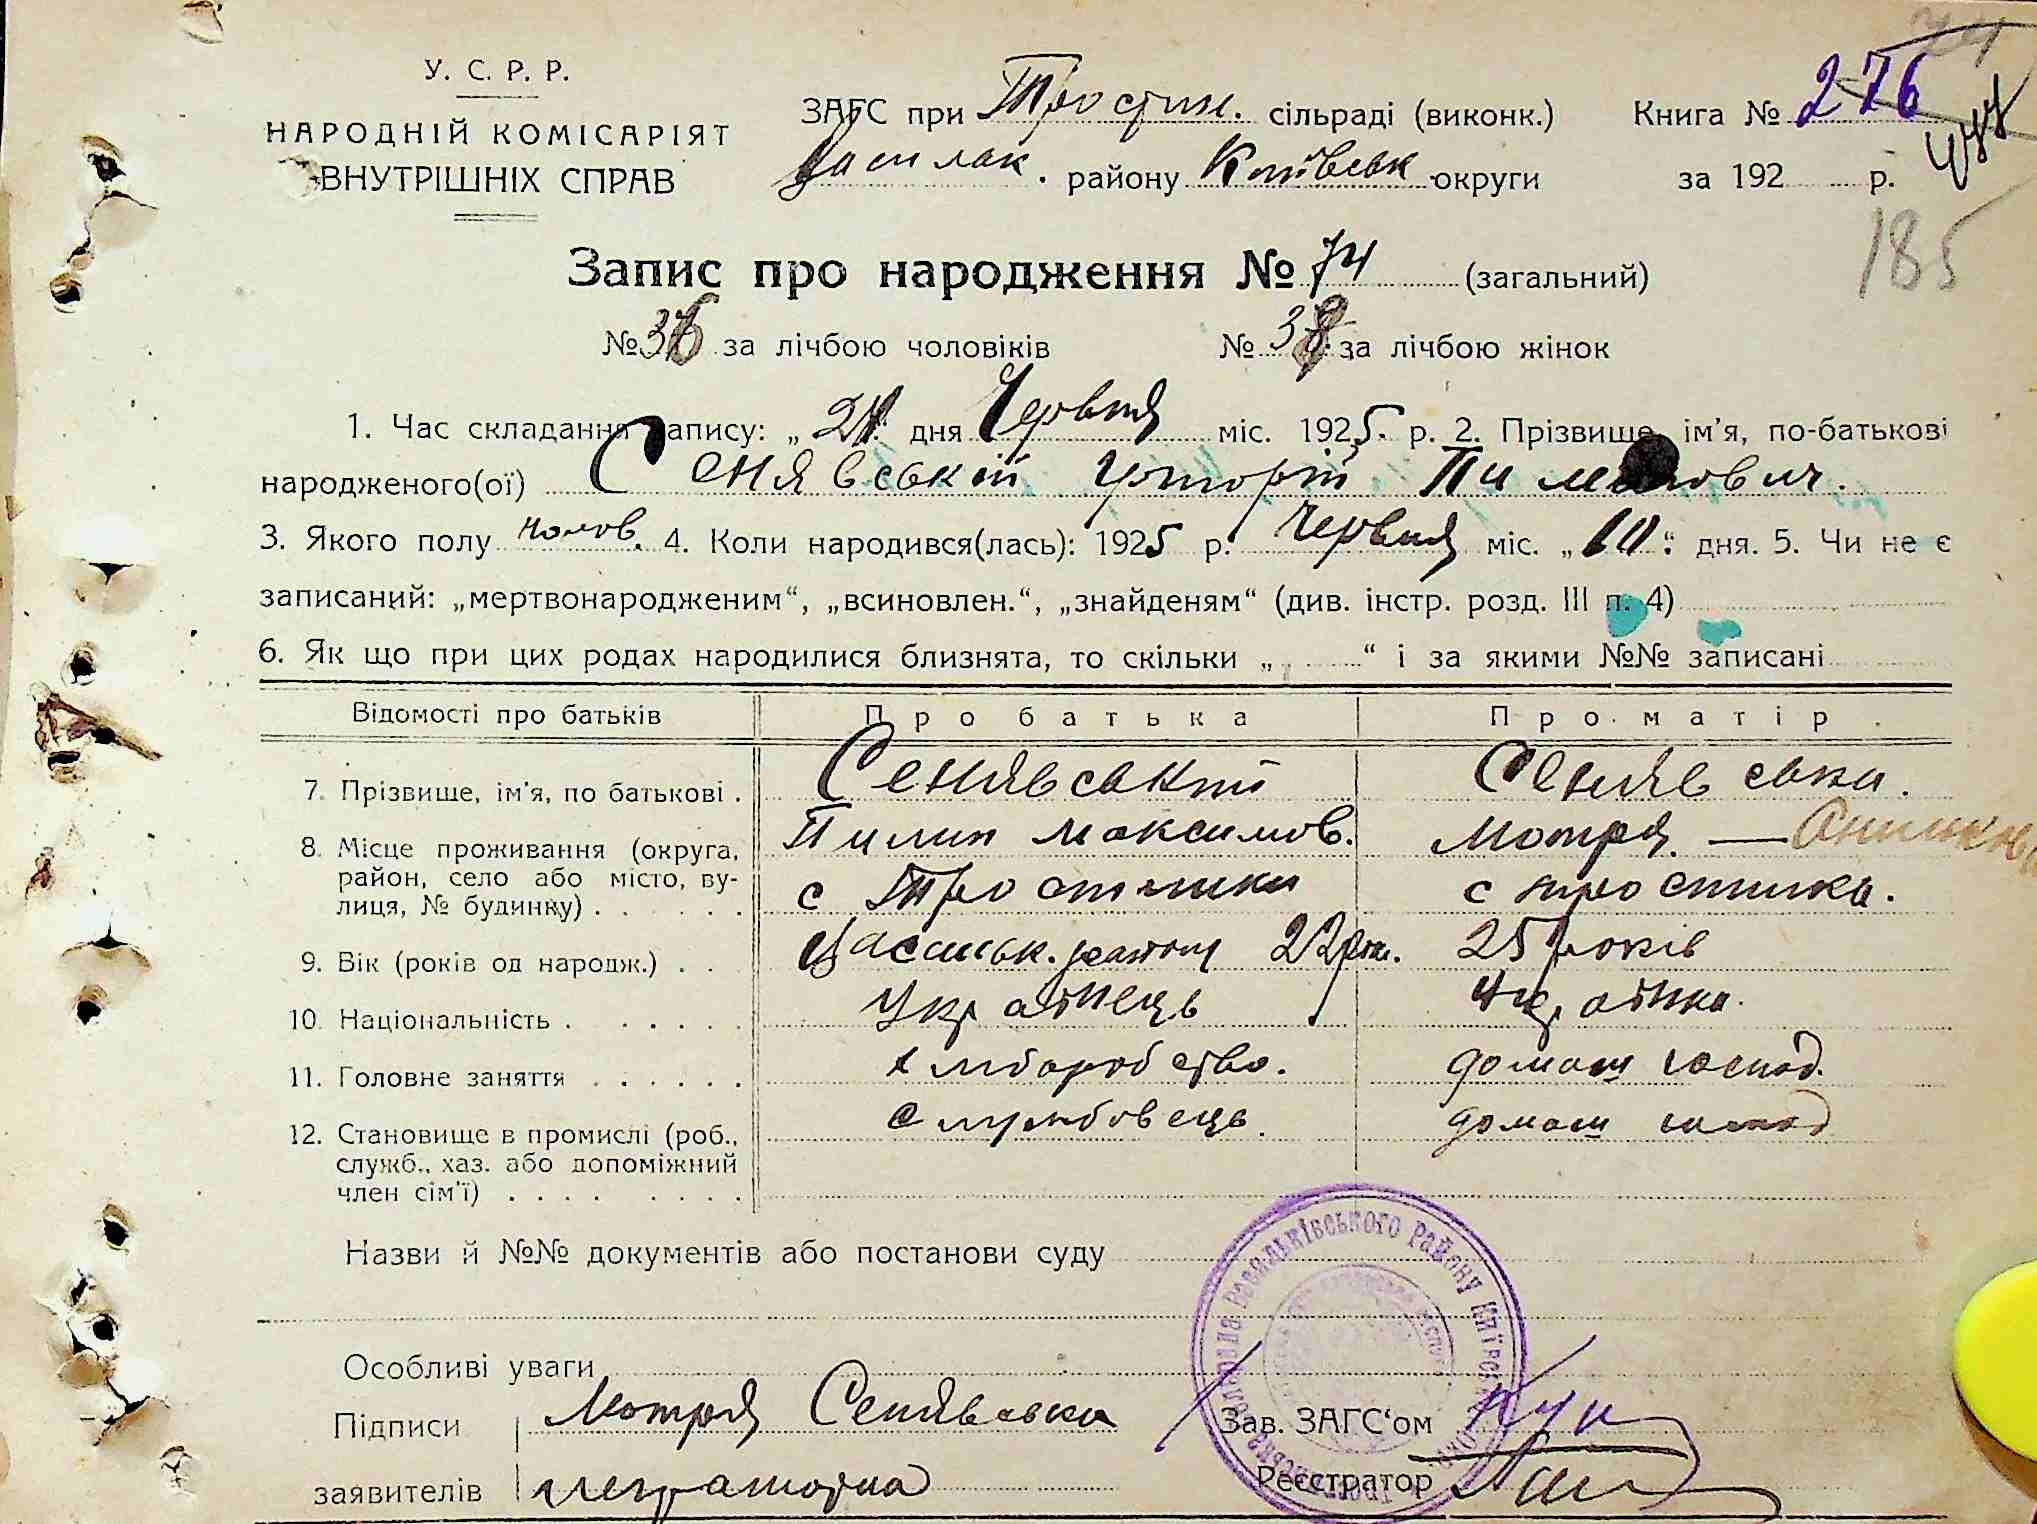 У. С. Р. Р.
НАРОДНІЙ КОМІСАРІЯТ
ВНУТРІШНІХ СПРАВ
ЗАГС при Тростин. сільраді (виконк.)
району Київськ округи
Книга № 276
за 192 р.
185
Запис про народження № 74 (загальний)
№ 36 за лічбою чоловіків № 38 за лічбою жінок
1. Час складання запису: „ 21 " дня Червня міс. 1925. р. 2. Прізвище, ім'я, по-батькові
народженого(ої) Сенявській Григорій Пилипович.
3. Якого полу чолов. 4. Коли народився(лась): 1925 р. Червня міс. „ 10 " дня. 5. Чи не є
записаний: „мертвонародженим", „всиновлен.", „знайденям" (див. інстр. розд. III п. 4)
6. Як що при цих родах народилися близнята, то скільки „ " і за якими №№ записані
Відомості про батьків Про батька Про матір
7. Прізвище, ім'я, по батькові . Сенявський Сенявська.
8. Місце проживання (округа, Пилип Максимов. Мотря —
район, село або місто, ву- с Тростинки с Тростинка.
лиця, № будинку) . . . . . .
9. Вік (років од народж.) . . 22 25 років
10. Національність . . . . . . Українець Українка.
11. Головне заняття . . . . . . хліборобство. домаш господ.
12. Становище в промислі (роб., службовець. домаш господ
служб., хаз. або допоміжний
член сім'ї) . . . . . . . .
Назви й №№ документів або постанови суду
Особливі уваги
Підписи Мотря Сенявська Зав. ЗАГС'ом
заявителів неграмотна Реєстратор